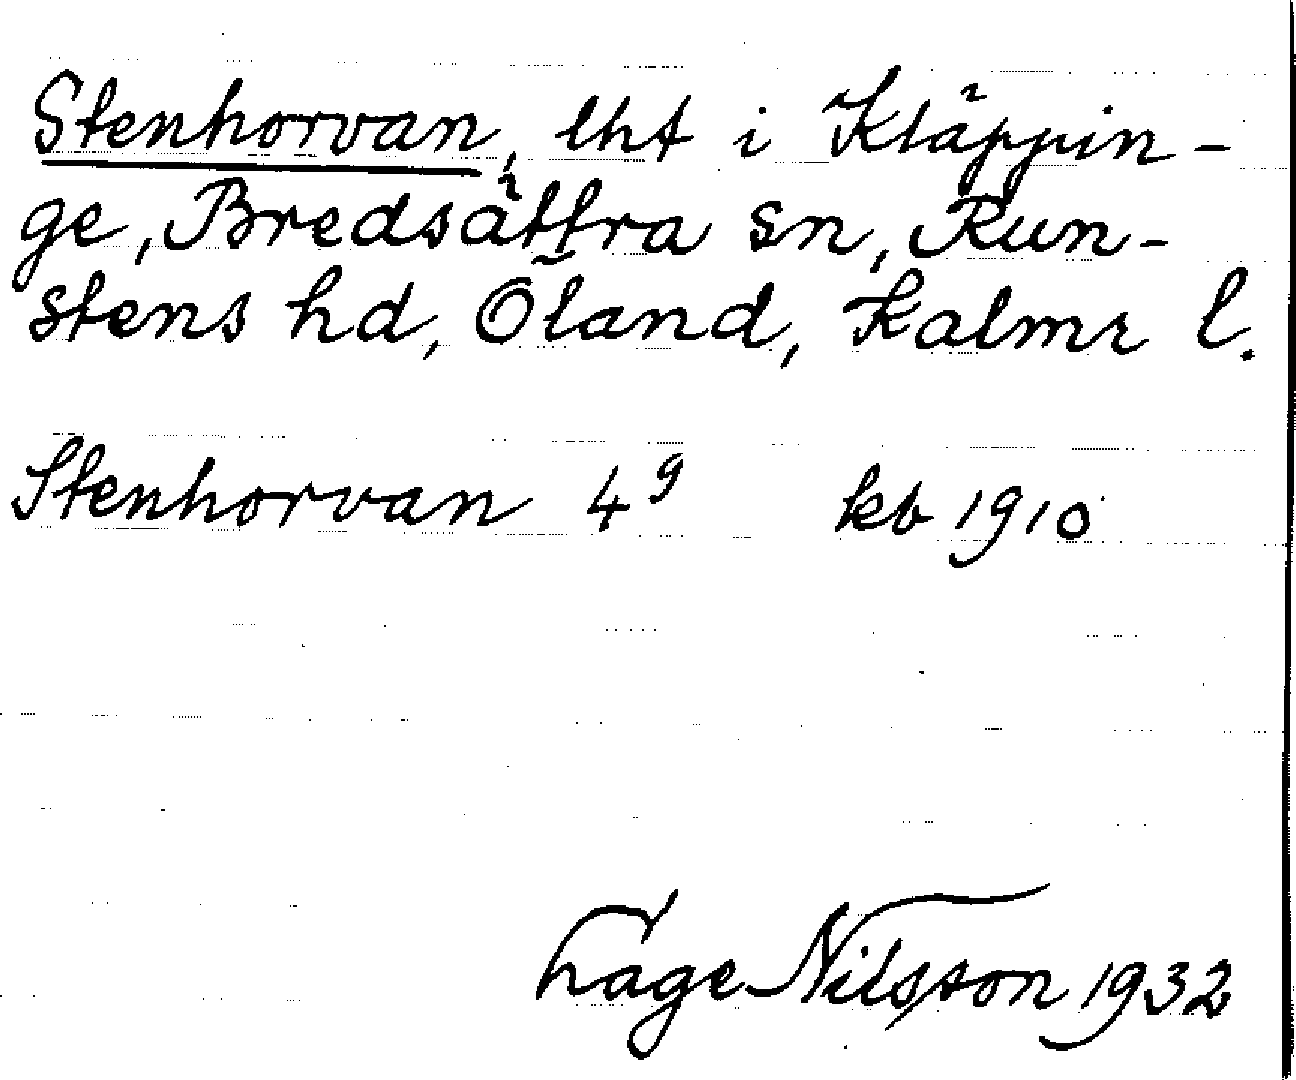 Stenhorvan, lht i Kläppin-
ge, Bredsättra sn, Run-
stens hd, Öland, Kalmr l.
Stenhorvan 4g kb 1910
Lage Nilsson 1932